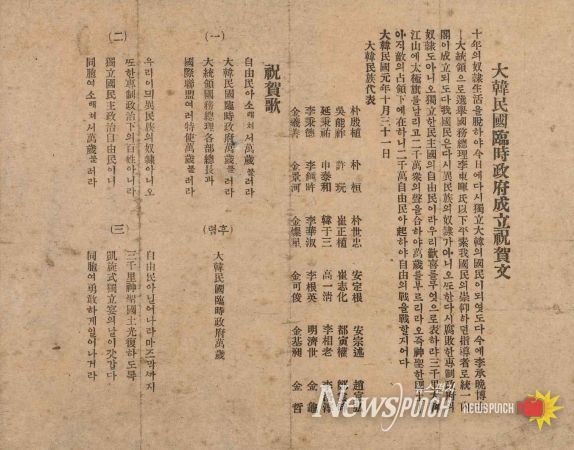 大韓民國臨時政府成立祝賀文
十年의奴隸生活을脫하야今日에다시獨立大韓의國民이되엿도다今에李承晩博
士大統領으로選擧國務總理李東暉氏以下平素我國民의崇仰하던指導者로統一
閣이成立되도다我國民은다시異民族의奴隸가아니오또한다시腐敗한專制政府의
奴隸도아니오獨立한民主國의自由民이라우리歡喜를무엇으로表하랴三千里
江山에太極旗를날리고二千萬衆의聲을合하야萬歲를부르리라오즉神聖한國土
아직敵의占領下에在하니二千萬自由民아起하야自由의戰을戰할지어다
大韓民國元年十月三十一日
大韓民族代表
朴殷植 朴桓 朴世忠 安定根 安宗述 趙宣
吳能祚 許玩 崔正植 崔志化 都寅權
延秉祐 申泰和 韓于三 高一淸 李相老
李秉德 李純時 李華淑 李根英 明濟世
金羲善 金景河 金燦星 金可俊 金基昶 金哲
祝賀歌
(一)
自由民아소래쳐서萬歲불러라
大韓民國臨時政府萬歲불러라
大統領國務總理各部總長과
國際聯盟여러特使萬歲불러라
(二)
우리이믜異民族의奴隸아니오
또한專制政治下의百姓아니라
獨立國民主政治自由民이니
同胞여소래쳐서萬歲불러라
(후렴)
大韓民國臨時政府萬歲
(三)
自由民아닐어나라마즈막까지
三千里神聖國土光復하도록
凱旋式獨立宴의날이갓갑다
同胞여勇敢하게닐어나거라
뉴스펀치
NEWSPUNCH
NEWSPUNCH